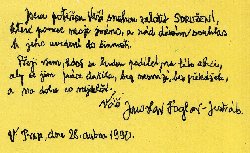 Jsem potěšen Vaší snahou založit SDRUŽENÍ,
které ponese moje jméno, a rád dávám souhlas
k jeho uvedení do činnosti.
Přeji všem, kdož se budou podílet na této akci,
aby se jim práce dařila, bez nesnází, bez překážek,
a na dobro co nejdelší.
Váš Jaroslav Foglar - Jestřáb.
V Praze, dne 28. února 1990.